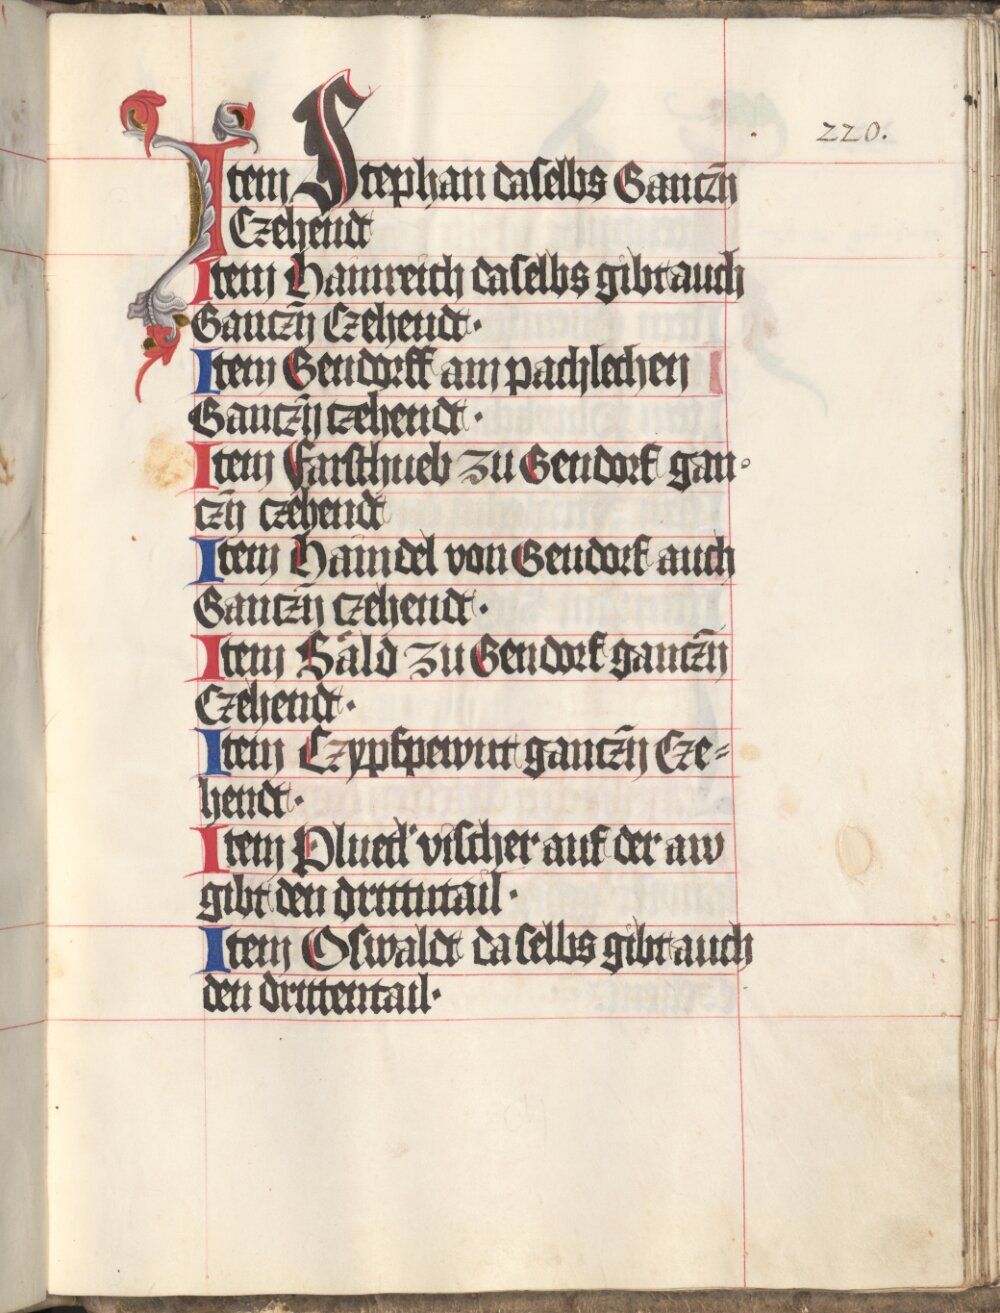 220.
Item Stephan daselbs Ganczn̄
Czehendt
Item Hainreich daselbs gibt auch
Ganczn̄ Czehendt·
Item Gendorff am pachlechen
Ganczn̄ czehendt·
Item Farsthueb zu Gendorf gan-
czn̄ czehendt
Item Haindel von Gendorf auch
Ganczn̄ czehendt·
Item Säld zu Gendorf ganczn̄
Czehendt·
Item Czypfpewnt ganczn̄ Cze-
hendt·
Item Pluetl vischer auf der aw
gibt den dritntail·
Item Oswaldt daselbs gibt auch
den drittentail·